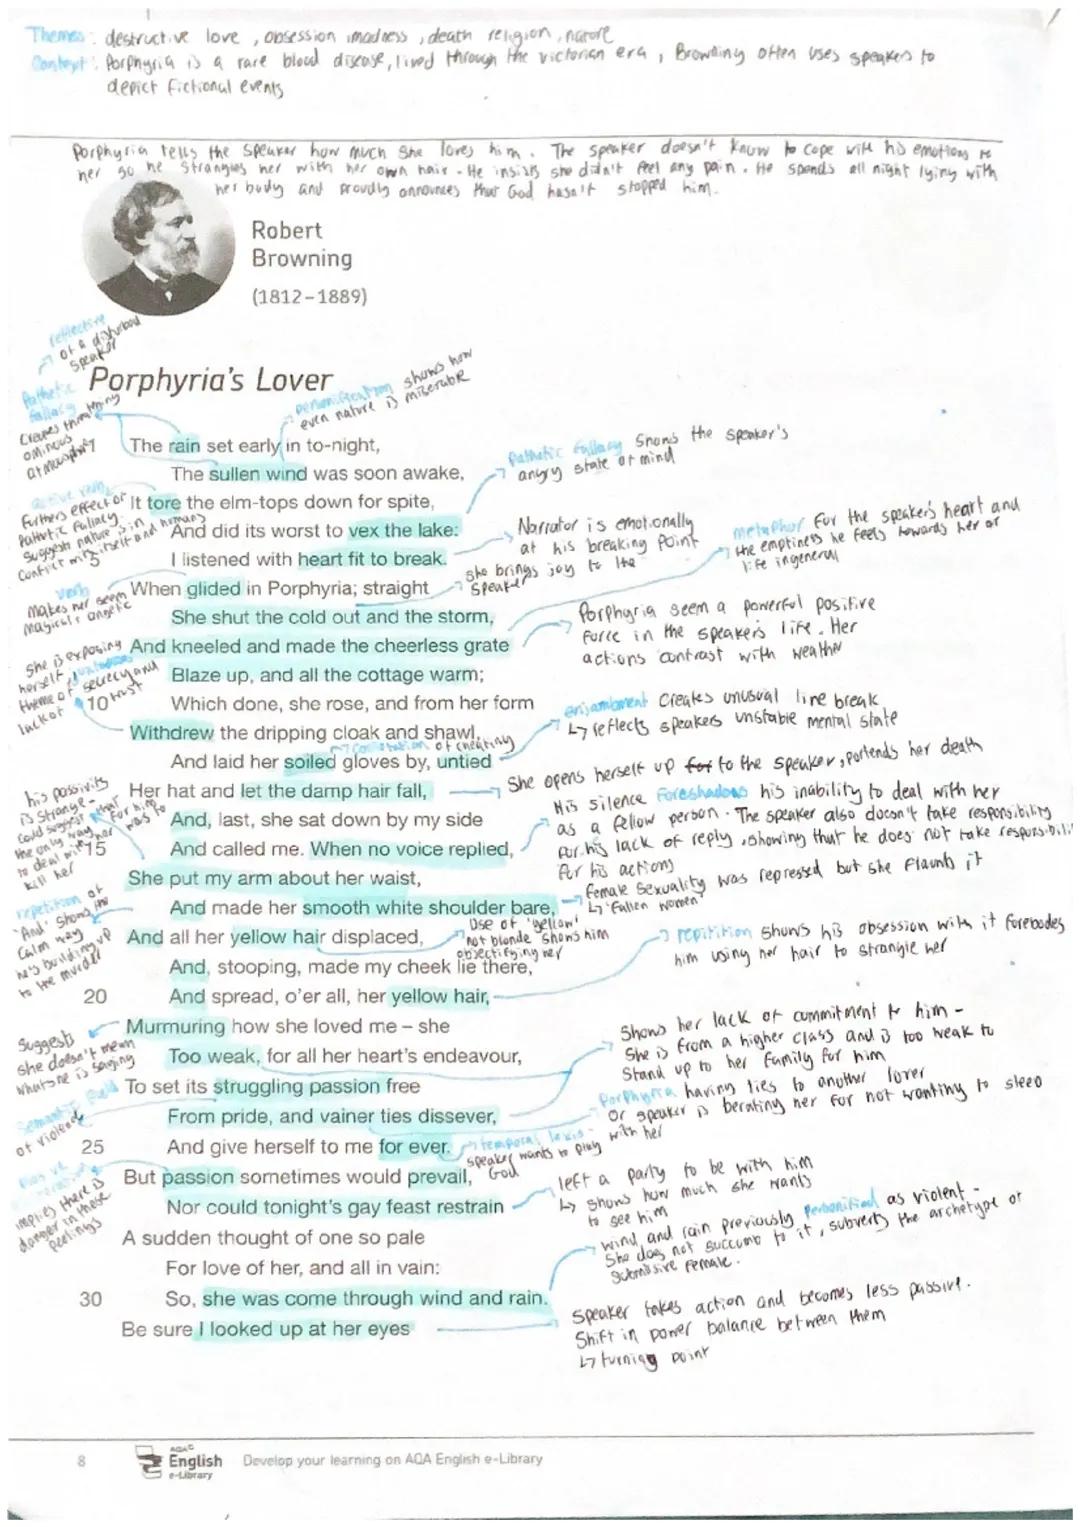 Themes: destructive love, obsession, madness, death religion, nature
Context: Porphyria is a rare blood disease, lived through the victorian era, Browning often uses speakers to
depict fictional events
Porphyria tells the speaker how much she loves him. The speaker doesn't know to cope with his emotions to
her so he strangles her with her own hair. He insists she didn't feel any pain. He spends all night lying with
her body and proudly announces that God hasn't stopped him.
Robert
Browning
(1812–1889)
reflective
of a disturbed
speaker
Porphyria's Lover
Pathetic
fallacy
Creates threatening
ominous
atmosphere
personification shows how
even nature is miserable
The rain set early in to-night,
The sullen wind was soon awake,
pathetic fallacy Shows the speaker's
angry state of mind
It tore the elm-tops down for spite,
active verb
Furthers effect of
Pathetic fallacy.
Suggests nature is in
conflict with itself and humans
And did its worst to vex the lake:
Narrator is emotionally
at his breaking point
I listened with heart fit to break.
metaphor For the speaker's heart and
the emptiness he feels towards her or
life in general
When glided in Porphyria; straight
she brings joy to the
speaker
verb
Makes her seem
magical, angelic
She shut the cold out and the storm,
And kneeled and made the cheerless grate
Porphyria seem a powerful positive
force in the speakers life. Her
actions contrast with weather
Blaze up, and all the cottage warm;
She is exposing
herself
theme of secrecy and
lack of trust
10
Which done, she rose, and from her form
Withdrew the dripping cloak and shawl,
enjambment Creates unusual line break
↳ reflects speakers unstable mental state
connotation of cheating
And laid her soiled gloves by, untied
Her hat and let the damp hair fall,
She opens herself up for to the speaker, portends her death
And, last, she sat down by my side
15
And called me. When no voice replied,
His silence foreshadows his inability to deal with her
as a fellow person. The speaker also doesn't take responsibility
for his lack of reply, showing that he does not take responsibili
for his actions
his passivity
is strange -
could suggest that
the only way for him
to deal with her was to
kill her
She put my arm about her waist,
And made her smooth white shoulder bare,
Female sexuality was repressed but she flaunts it
↳ 'Fallen women'
repetition of
'And' shows the
calm way
he's building up
to the murder
And all her yellow hair displaced,
Use of 'yellow'
not blonde shows him
objectifying her
And, stooping, made my cheek lie there,
20
And spread, o'er all, her yellow hair,
repitition shows his obsession with it forebodes
him using her hair to strangle her
Murmuring how she loved me – she
Suggests
she doesn't mean
what she is saying
Too weak, for all her heart's endeavour,
Shows her lack of commitment to him -
She is from a higher class and is too weak to
Stand up to her family for him
To set its struggling passion free
Semantic field
of violence
From pride, and vainer ties dissever,
Porphyria having ties to another lover
Or speaker is berating her for not wanting to sleep
with her
25
And give herself to me for ever.
temporal lexis -
speaker wants to play
God
But passion sometimes would prevail,
implies there is
danger in these
feelings
Nor could tonight's gay feast restrain
left a party to be with him
↳ shows how much she wants
to see him
A sudden thought of one so pale
For love of her, and all in vain:
30
So, she was come through wind and rain.
wind and rain previously personified as violent -
She does not succumb to it, subverts the archetype of
submissive female.
Be sure I looked up at her eyes
Speaker takes action and becomes less passive.
Shift in power balance between them
↳ turning point
8
AQA
English
e-Library
Develop your learning on AQA English e-Library